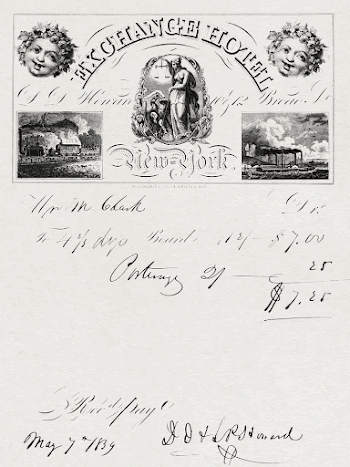 EXCHANGE HOTEL
D. D. Howard 10 & 12 Broad St
New-York.
Mr M. Clark Dr
To 4⅔ dys Board 12/- $7.00
Porterage 2/ 25
$7.25
Recd Payt
May 7th 1839 D. D. & R. S. Howard